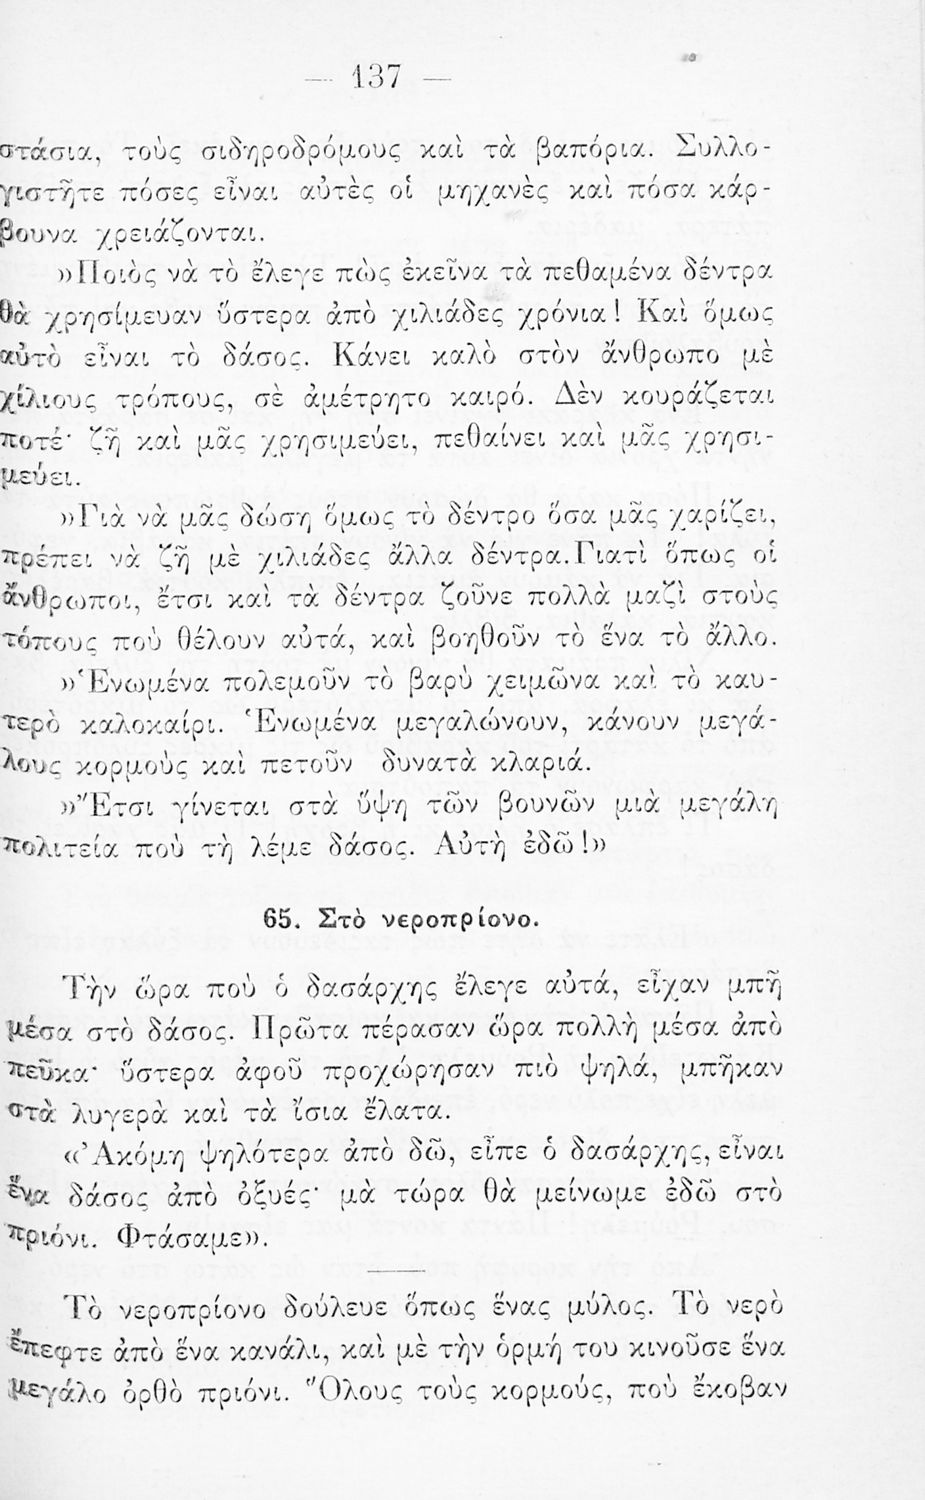 — 137 —
στάσια, τοὺς σιδηροδρόμους καὶ τὰ βαπόρια. Συλλο-
γιστῆτε πόσες εἶναι αὐτὲς οἱ μηχανὲς καὶ πόσα κάρ-
βουνα χρειάζονται.
»Ποιὸς νὰ τὸ ἔλεγε πὼς ἐκεῖνα τὰ πεθαμένα δέντρα
θὰ χρησίμευαν ὕστερα ἀπὸ χιλιάδες χρόνια! Καὶ ὅμως
αὐτὸ εἶναι τὸ δάσος. Κάνει καλὸ στὸν ἄνθρωπο μὲ
χίλιους τρόπους, σὲ ἀμέτρητο καιρό. Δὲν κουράζεται
ποτέ· ζῆ καὶ μᾶς χρησιμεύει, πεθαίνει καὶ μᾶς χρησι-
μεύει.
»Γιὰ νὰ μᾶς δώση ὅμως τὸ δέντρο ὅσα μᾶς χαρίζει,
πρέπει νὰ ζῆ μὲ χιλιάδες ἄλλα δέντρα.Γιατὶ ὅπως οἱ
ἄνθρωποι, ἔτσι καὶ τὰ δέντρα ζοῦνε πολλὰ μαζὶ στοὺς
τόπους ποὺ θέλουν αὐτά, καὶ βοηθοῦν τὸ ἕνα τὸ ἄλλο.
»Ἑνωμένα πολεμοῦν τὸ βαρὺ χειμῶνα καὶ τὸ καυ-
τερὸ καλοκαίρι. Ἑνωμένα μεγαλώνουν, κάνουν μεγά-
λους κορμοὺς καὶ πετοῦν δυνατὰ κλαριά.
»Ἔτσι γίνεται στὰ ὕψη τῶν βουνῶν μιὰ μεγάλη
πολιτεία ποὺ τὴ λέμε δάσος. Αὐτὴ ἐδῶ!»
65. Στὸ νεροπρίονο.
Τὴν ὥρα ποὺ ὁ δασάρχης ἔλεγε αὐτά, εἶχαν μπῆ
μέσα στὸ δάσος. Πρῶτα πέρασαν ὥρα πολλὴ μέσα ἀπὸ
πεῦκα· ὕστερα ἀφοῦ προχώρησαν πιὸ ψηλά, μπῆκαν
στὰ λυγερὰ καὶ τὰ ἴσια ἔλατα.
«Ἀκόμη ψηλότερα ἀπὸ δῶ, εἶπε ὁ δασάρχης, εἶναι
ἕνα δάσος ἀπὸ ὀξυές· μὰ τώρα θὰ μείνωμε ἐδῶ στὸ
πριόνι. Φτάσαμε».
Τὸ νεροπρίονο δούλευε ὅπως ἕνας μύλος. Τὸ νερὸ
ἔπεφτε ἀπὸ ἕνα κανάλι, καὶ μὲ τὴν ὁρμή του κινοῦσε ἕνα
μεγάλο ὀρθὸ πριόνι. Ὅλους τοὺς κορμούς, ποὺ ἔκοβαν